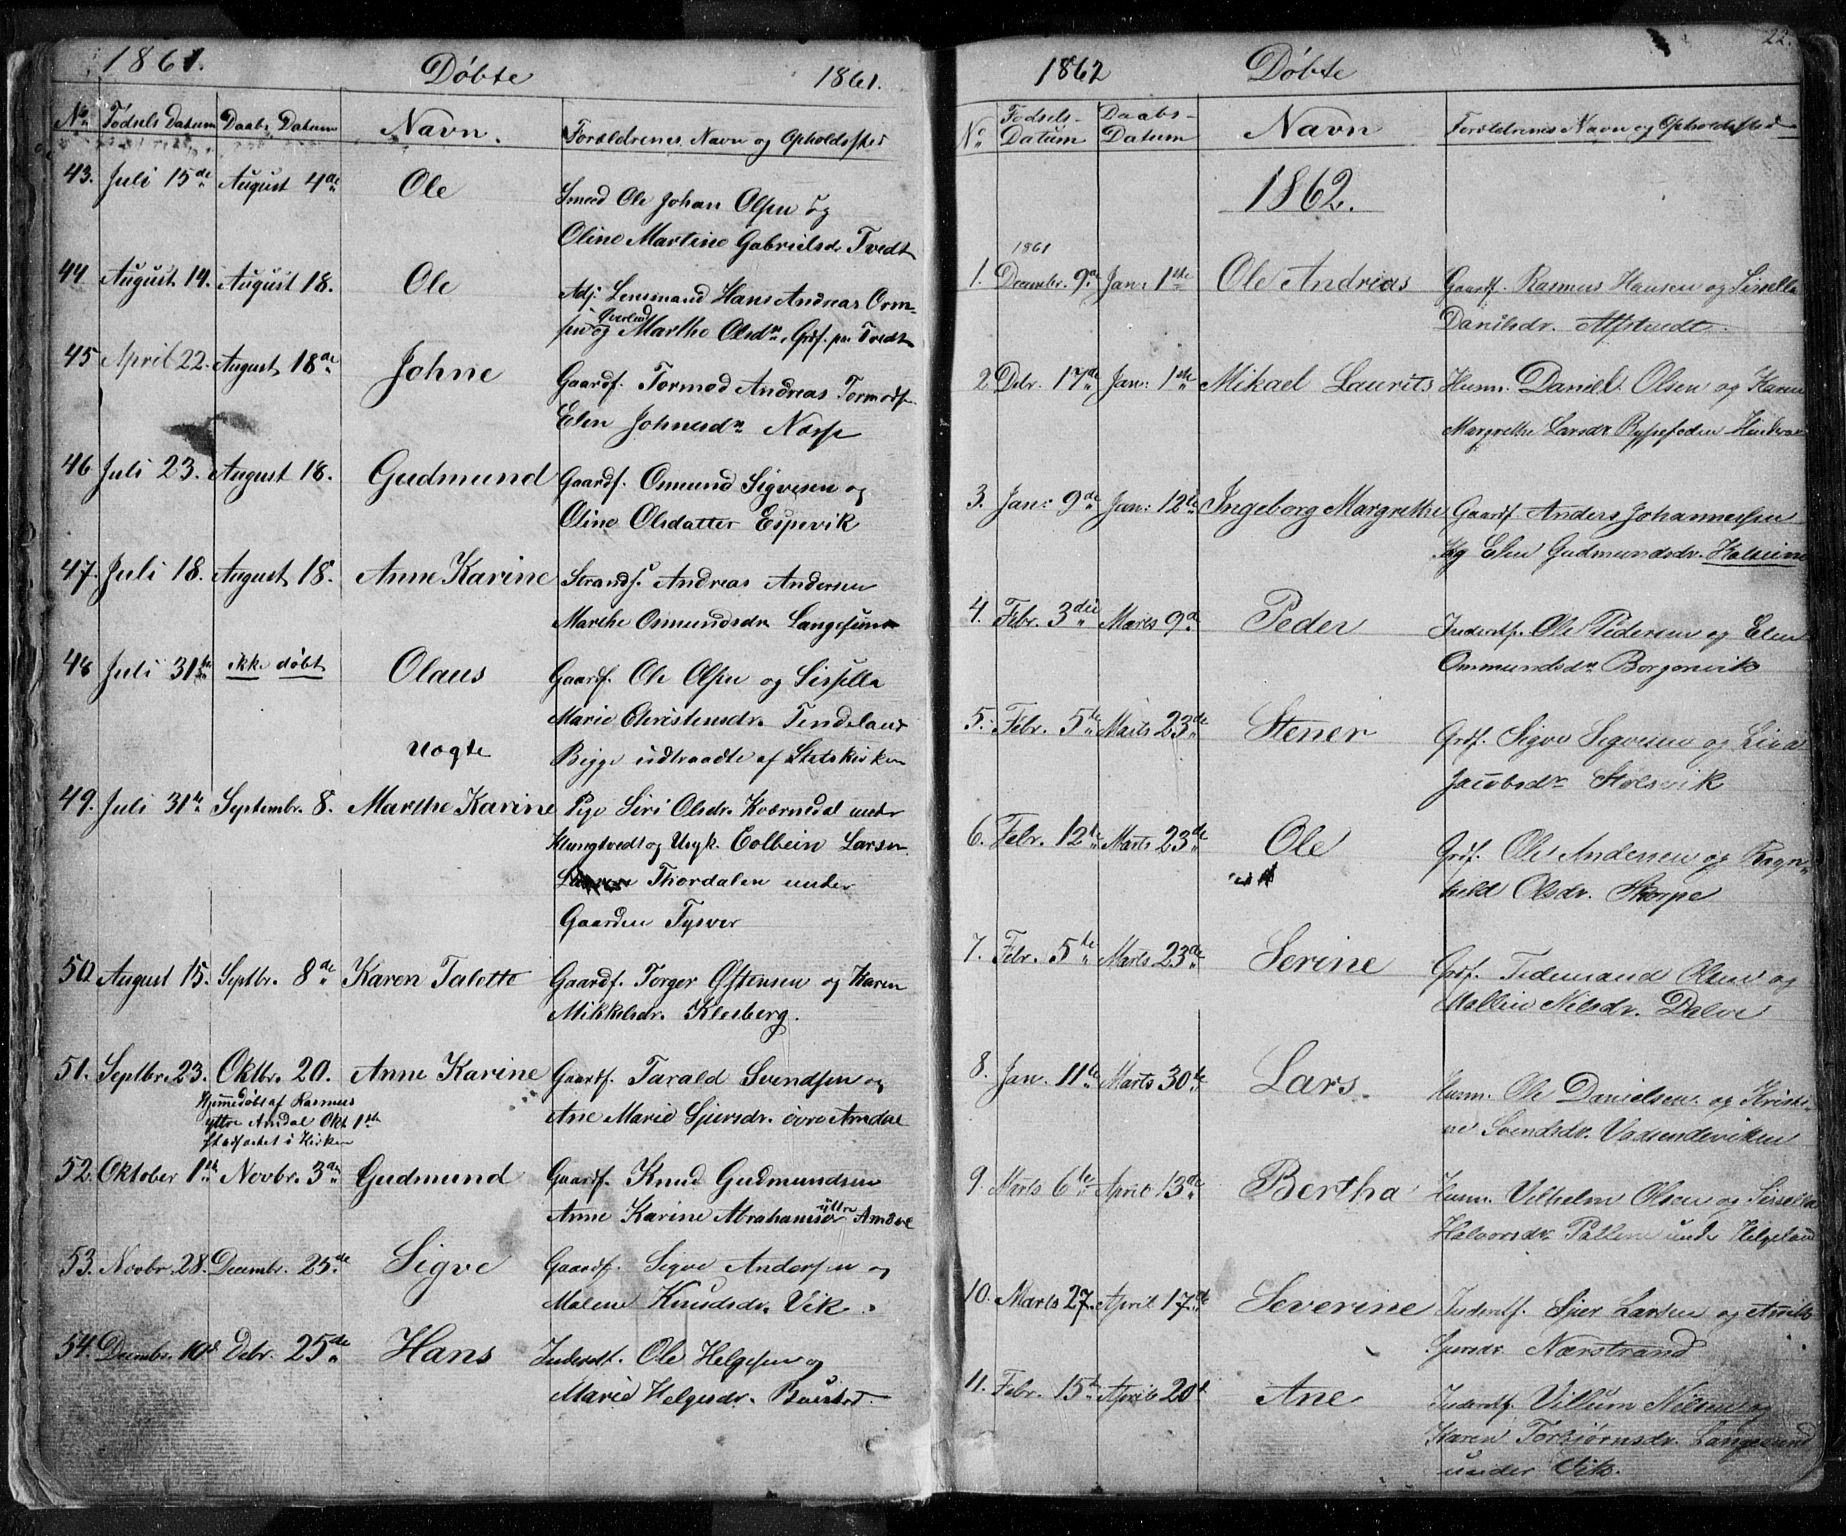 1861. Døbte 1861.
No Fødsels Datum Daabs Datum Navn. Forældrenes Navn og Opholdssted
43. Juli 15de August 4de Ole Smed Ole Johan Olsen og
Oline Martine Gabrielsdr Tvedt
44 August 14. August 18. Ole Adj. Lensmand Hans Andreas Orm-
Qverland
sen og Marthe Olsdr. Grdf. paa Tvedt
45 April 22. August 18de Johne Gaardf. Tormod Andreas Tormods.
Elen Johnesdr
46 Juli 23. August 18. Gudmund Gaardf. Osmund Sigvesen og
Oline Olsdatter Espevik
47. Juli 18. August 18. Anne Karine Strands. Andreas Andersen
Marthe Osmundsdr Langesund
48 Juli 31te ikke døbt Olaus Gaardf. Ole Olsen og Sissilla
Marie Christensdr. Tendeland
uægte Begge udtraadte af Statskirken
49. Juli 31te Septembr. 8. Marthe Karine Pige Siri Olsdr. Kværnedal under
Klungtvedt og Ungk. Eolbein Larsen
Thordalen under
Gaarden Tysver
50. August 15. Septbr. 8de Karen Talette Gaardf. Torger Østensen og Karen
Mikkelsdr. Klesberg.
51. Septbr. 23. Oktbr. 20. Anne Karine Gaardf. Tarald Svendsen og
Hjemmedøbt af Rasmus
Ane Marie Sjursdr. øvre Amdal
yttre Amdal Okt 1ste
stadfæstet i Kirken
52. Oktober 1ste Novbr. 3de Gudmund Gaardf. Knud Gudmundsen
yttre
Anne Karine Abrahamsdr Amdal
53. Novbr. 28. Decembr. 25de Sigve Gaardf. Sigve Andersen og
Malene Knudsdr. Vik.
54. Decembr. 10d Debr. 25de Hans Inderstf. Ole Helgesen og
Marie Helgesdr.
22.
1862 Døbte
No Fødsels- Datum Daabs- Datum Navn Forældrenes Navn og Opholdssted
1862.
1861
1. Decembr. 9de Jan: 1ste Ole Andreas Gaardf. Rasmus Hansen og Sissella
Danilsdr.
2 Debr. 17de Jan: 1ste Mikael Laurits Husm. Daniel Olsen og Karen
Margrethe Larsdr
3. Jan: 9de Jan: 12te Ingeborg Margrethe Gaardf. Anders Johannessen
og Elen Gudmundsdr.
4. Febr. 3die Marts 9de Peder Inderstf. Ole Pedersen og Elen
Ommundsdr Borgenvik
5. Febr. 5te Marts 23de Stener Grdf. Sigve Sigvesen og Liva
Jacobsdr Stølsvik
6. Febr. 12te Marts 23de Ole Grdf. Ole Andersen og Ragn-
hild Olsdr. Skorpe
7. Febr. 5te Marts 23de Serine Grdf. Tidemand Olsen og
Mallene Nilsdr. Dalve
8. Jan. 11te Marts 30te Lars. Husm. Ole Danielsen og Kristi-
ne Svendsdr. Vadsendeviken
9 Marts 6te April 13de Bertha Husm. Vilhelm Olsen og Sissella
Halvorsdr. Pallene under Helgeland
10. Marts 27. April 17de Severine Inderstf. Sjur Larsen og
Sjursdr. Nærstrand
11. Febr. 15te April 20d. Ane Inderstf. Villum Nilsen og
Karen Torbjørnsdr. Langesund
under Vik.